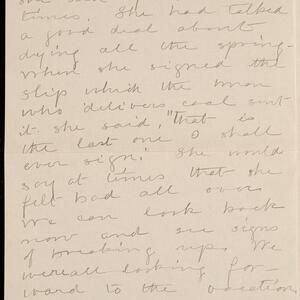 times. She had talked
a good deal about
dying all the spring-
when she signed the
slip which the man
who delivers coal sent
it she said, "That is
the last one I shall
ever sign." She would
say at times that she
felt bad all over.
We can look back
now and see signs
of breaking up. We
were all looking for-
ward to the vacation